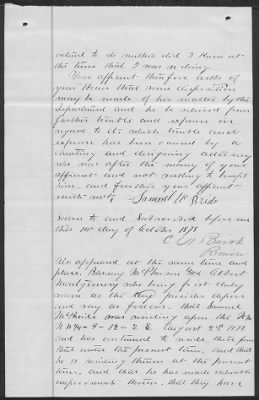 intend to do neither did I know at
the time that I was so doing.
Your affiant therefore asks of
your Honor that some disposition
may be made of his matter by the
department and he be relieved from
further trouble and expense in
regard to it which trouble and
expense has been caused by a
cheating and designing attorney
who was after the money of your
affiant and not seeking to benefit
him, and further your affiant
saith not. Samuel McBride
sworn to and Subscribed before me
this 10th day of October 1878
C. H.
also appeared at the same time and
place. Barney McPherson and Albert
Montgomery who being first duly
sworn as the law provides depose
and say as follows, that Samuel
McBride was residing upon the
August 4th 1872
and has continued to reside there from
that until the present time, and that
he is residing thereon at the present
time, and that he has made valuable
improvements thereon. that they have